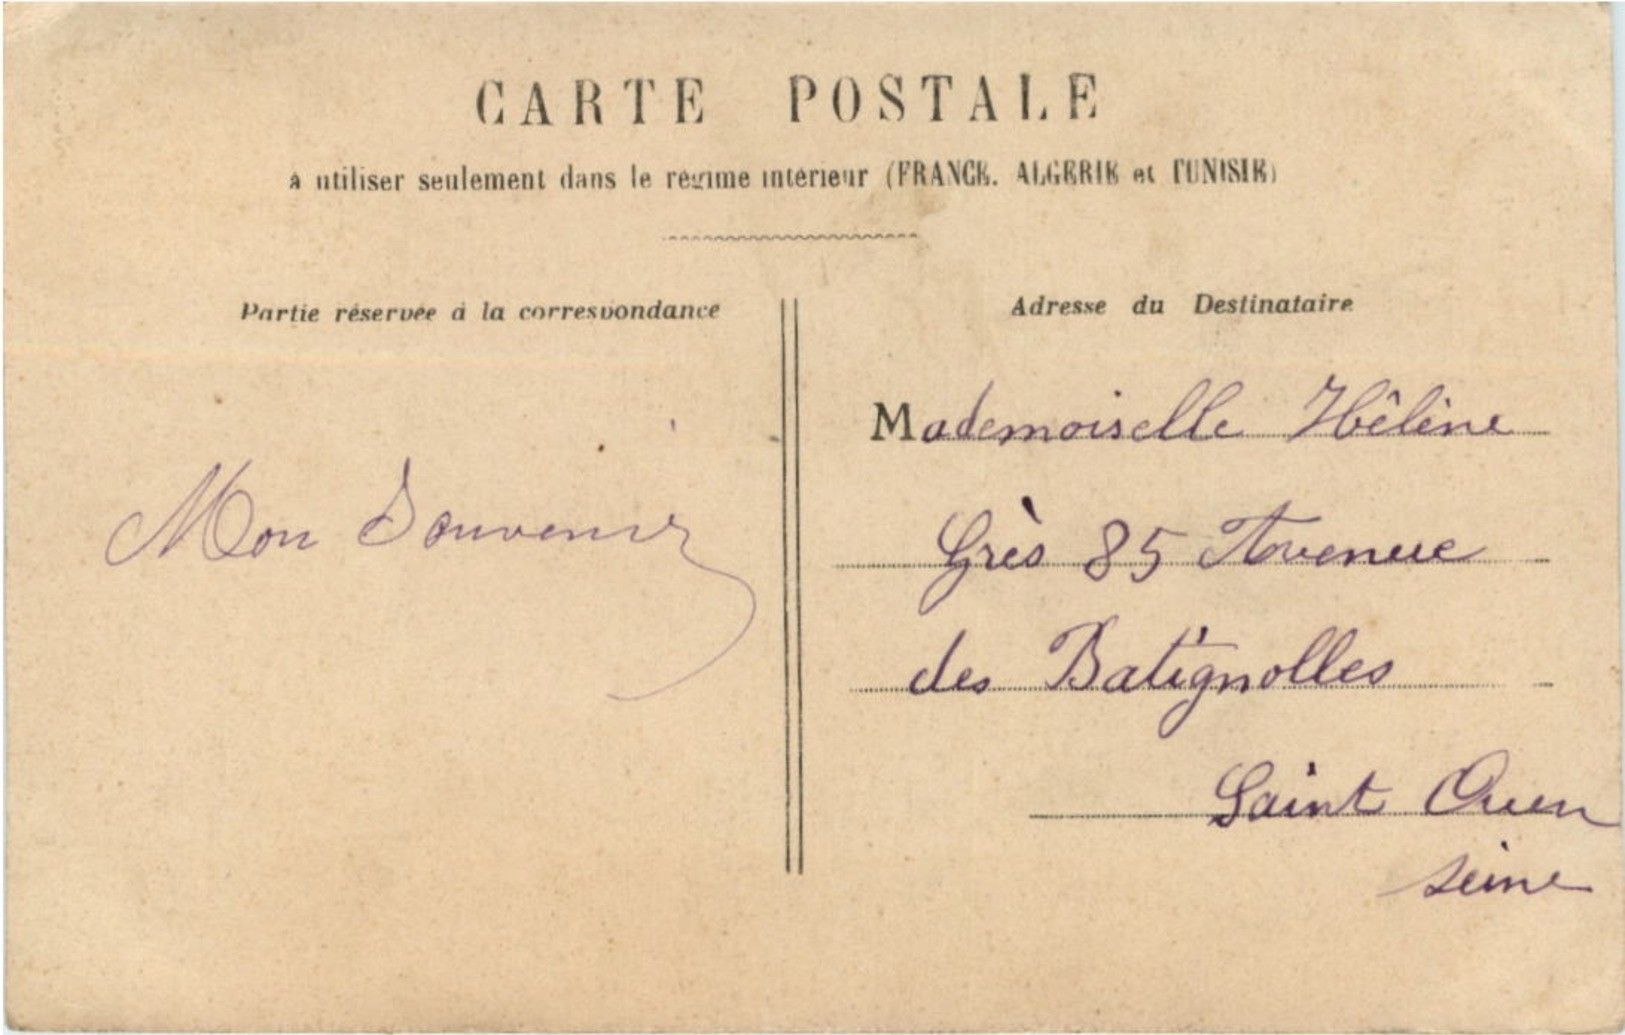 CARTE POSTALE
à utiliser seulement dans le régime intérieur (FRANCE, ALGERIE et TUNISIE)
Partie réservée à la correspondance
Adresse du Destinataire
Mon Souvenir
Mademoiselle Hélène
Grès 85 Avenue
des Batignolles
Saint Ouen
Seine